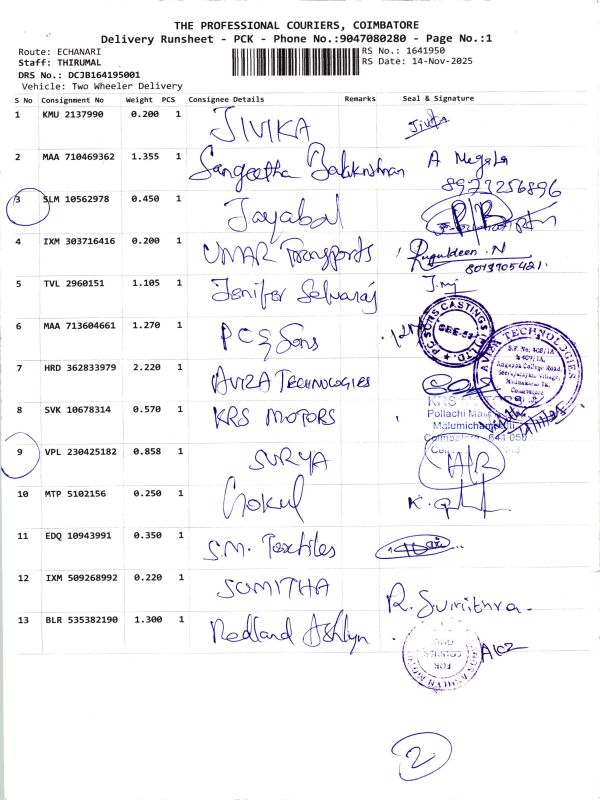 THE PROFESSIONAL COURIERS, COIMBATORE
Delivery Runsheet - PCK - Phone No.:9047080280 - Page No.:1
Route: ECHANARI
RS No.: 1641950
Staff: THIRUMAL
RS Date: 14-Nov-2025
DRS No.: DCJB164195001
Vehicle: Two Wheeler Delivery
S No Consignment No Weight PCS Consignee Details Remarks Seal & Signature
1 KMU 2137990 0.200 1 JIVIKA Jivika
2 MAA 710469362 1.355 1 Sangeetha Balakrishnan A Megala
8973256896
3 SLM 10562978 0.450 1 Jayabal P/B
4 IXM 303716416 0.200 1 UMAR Transports
8013705421
5 TVL 2960151 1.105 1 Jenifer Selvaraj
6 MAA 713604661 1.270 1 PCS Sons
PC SONS CASTINGS
7 HRD 362833979 2.220 1 AVIZA TECHNOLOGIES
AVIZA TECHNOLOGIES
S.F. No. 408/1A
& 409/1A
8 SVK 10678314 0.570 1 KRS MOTORS
KRS
Pollachi
Malumichampatti
Coimbatore 641 050
9 VPL 230425182 0.858 1 SURYA A/R
10 MTP 5102156 0.250 1 Gokul
11 EDQ 10943991 0.350 1 S.M. Textiles
12 IXM 509268992 0.220 1 SUMITHA R. Sumithra
13 BLR 535382190 1.300 1 Redland Ashlyn
FOR
COURIER
ONLY
2